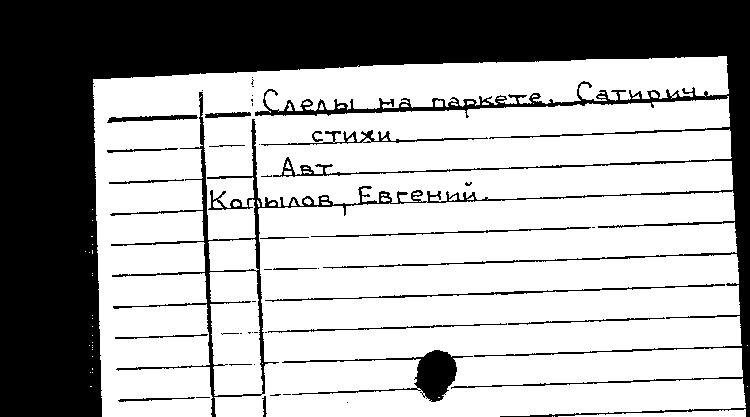 Следы на паркете. Сатирич.
стихи.
Авт.
Копылов, Евгений.